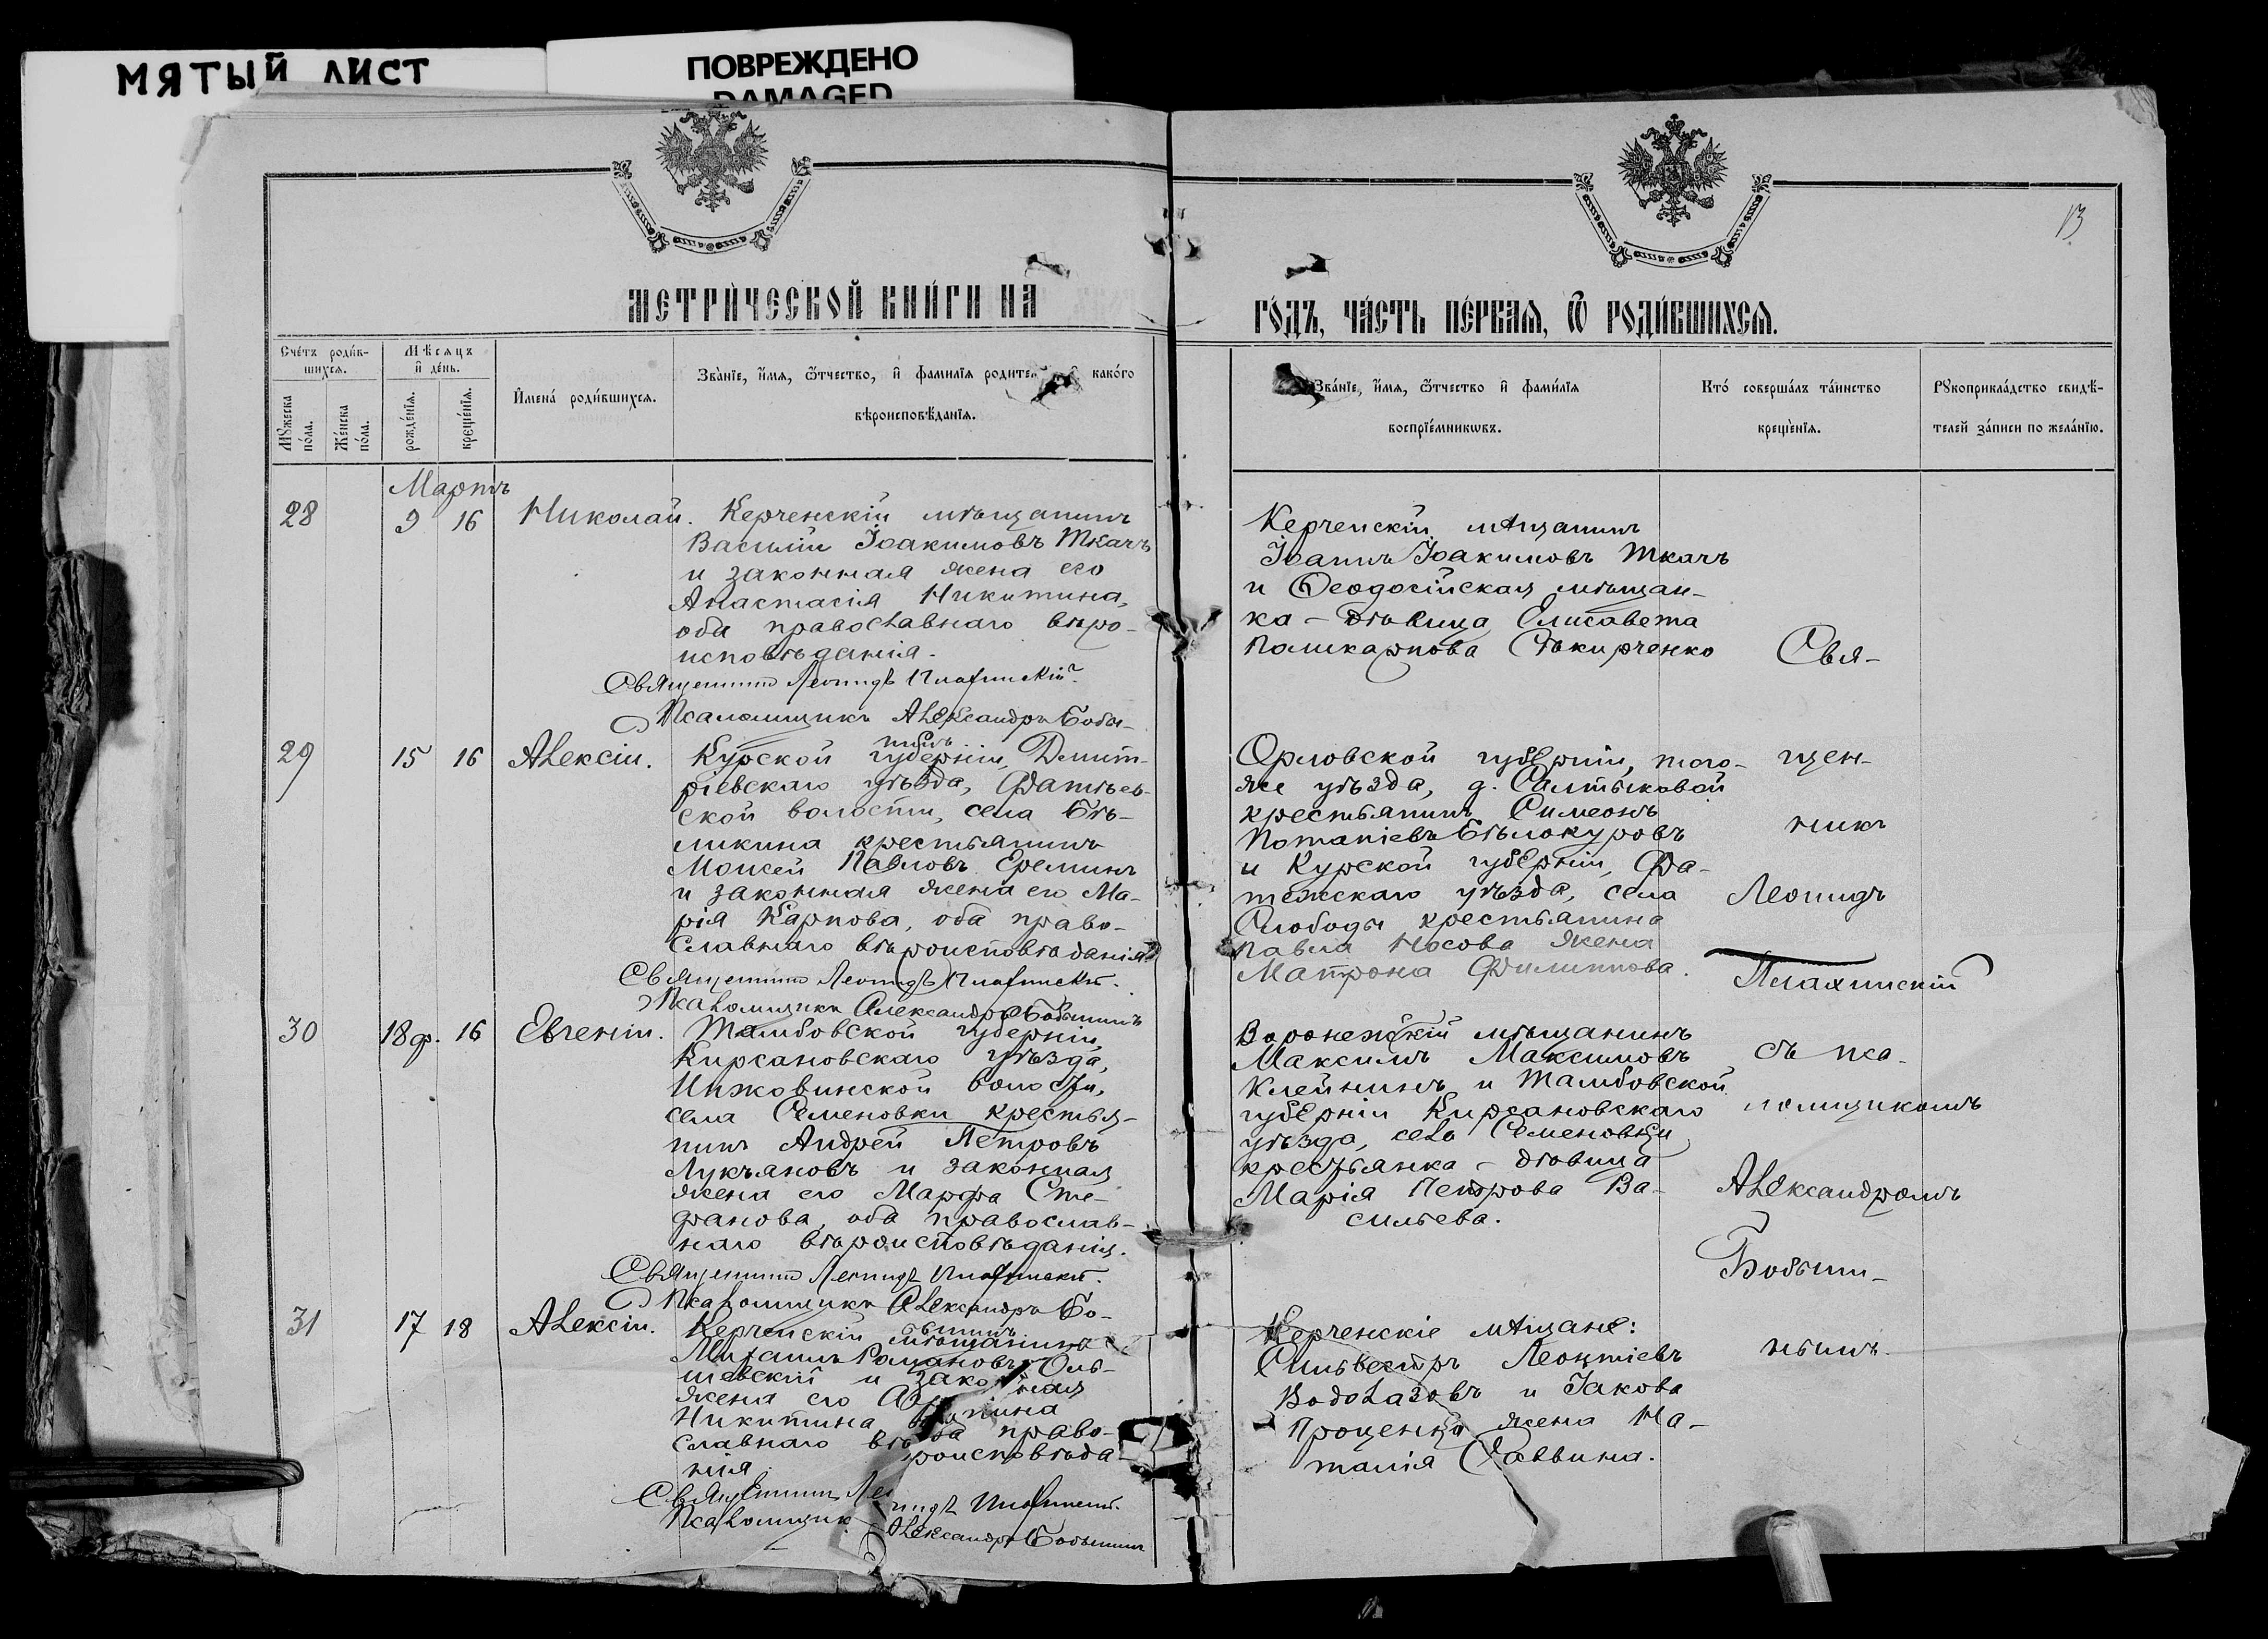 МЯТЫЙ ЛИСТ
ПОВРЕЖДЕНО
DAMAGED
13
МЕТРИ́ЧЕСКОЙ КНИ́ГИ НА
ГО́ДЪ, ЧА́СТЬ ПЕ́РВАЯ, Ѿ РОДИ́ВШИХСЯ.
Сче́тъ роди́в-
шихся.
Му́жеска
по́ла.
Же́нска
по́ла.
Мѣсяцъ
и де́нь.
рожде́нїя.
креще́нїя.
Имена́ роди́вшихся.
Зва́нїе, и́мя, ѻ́тчество, и фами́лїя родите како́го
вѣроисповѣ́данїя.
Зва́нїе, и́мя, ѻ́тчество и фами́лїя
воспрїе́мниковъ.
Кто́ соверша́лъ та́инство
креще́нїя.
Рукоприкла́дство свидѣ́-
телей за́писи по жела́нїю.
Мартъ
28 9 16 Николай. Керченскій мѣщанинъ
Василій Іоакимовъ Ткачъ
и законная жена его
Анастасія Никитина,
оба православнаго вѣро-
исповѣданія.
Священникъ Леонидъ Плахинскій
Псаломщикъ Александръ Бобы-
нинъ
Керченскій мѣщанинъ
Іоаннъ Іоакимовъ Ткачъ
и Ѳеодосійская мѣщан-
ка - дѣвица Елисавета
Поликарпова
29 15 16 Алексій. Курской губерніи, Дмит-
ріевскаго уѣзда,
ской волости, села Бѣ-
ликина крестьянинъ
Моисей Павловъ Ереминъ
и законная жена его Ма-
рія Карпова, оба право-
славнаго вѣроисповѣданія
Священникъ Леонидъ Плахинскій.
Псаломщикъ Александръ Бобынинъ
Орловской губерніи, того-
же уѣзда, д. Салтыковой
крестьянинъ Симеонъ
Потапіевъ Бѣлокуровъ
и Курской губерніи, Фа-
тежскаго уѣзда, села
Слободы крестьянина
Павла Носова жена
Матрона Филиппова.
30 18 ф. 16 Евгеній. Тамбовской губерніи,
Кирсановскаго уѣзда,
Инжовинской волости,
села Семеновки крестья-
нинъ Андрей Петровъ
Лукъяновъ и законная
жена его Марфа Сте-
фанова, оба православ-
наго вѣроисповѣданія.
Священникъ Леонидъ Плахинскій.
Псаломщикъ Александръ Бо-
бынинъ
Воронежскій мѣщанинъ
Максимъ Максимовъ
Клейнинъ и Тамбовской
губерніи Кирсановскаго
уѣзда, села Семеновки
крестьянка - дѣвица
Марія Петрова Ва-
сильева.
31 17 18 Алексій. Керченскій мѣщанинъ
Михаилъ Романовъ Оль-
шевскій и законная
жена его
Никитина оба право-
славнаго вѣроисповѣда-
нія
Священникъ Леонидъ Плахинскій.
Псаломщикъ Александръ Бобынинъ
Керченскіе мѣщане:
Сильвестръ Леонтіевъ
Водолазовъ и Іакова
Проценко жена На-
талія Саввина.
Свя-
щен-
никъ
Леонидъ
Плахинскій
съ пса-
ломщикомъ
Александромъ
Бобыни-
нымъ.